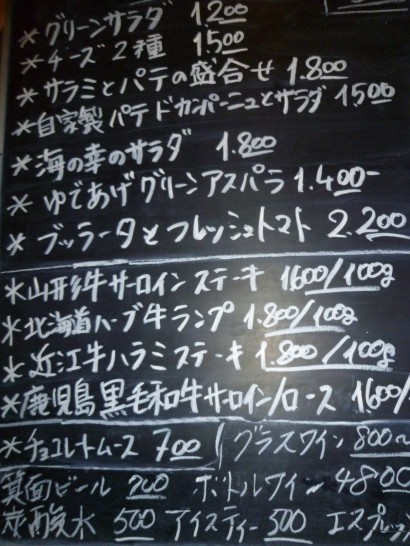 * グリーンサラダ 1200
* チーズ2種 1500
* サラミとパテの盛合せ 1.800
* 自家製パテドカンパーニュとサラダ 1500
* 海の幸のサラダ 1.800
* ゆであげグリーンアスパラ 1.400-
* ブッラータとフレッシュトマト 2.200
* 山形牛サーロインステーキ 1600/100g
* 北海道ハーブ牛ランプ 1.800/100g
* 近江牛ハラミステーキ 1.800/100g
* 鹿児島黒毛和牛サーロイン/ロース 1600/
* チョコレートムース 700 グラスワイン 800~
箕面ビール 700 ボトルワイン 4800
炭酸水 500 アイスティー 500 エスプレッ